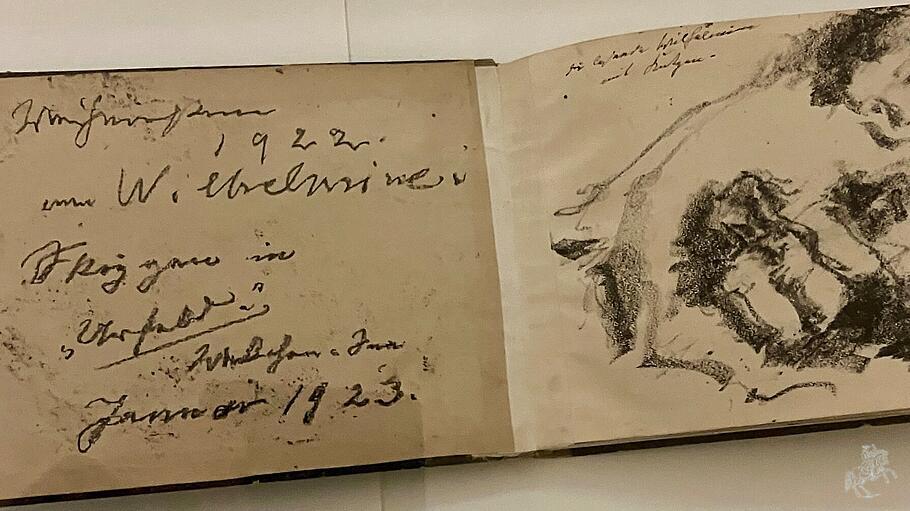 Weihnachten
1922.
von Wilhelmine.
Skizzen in
„Urfeld“
Walchen-See
Januar 1923.
Die lesende Wilhelmine
mit